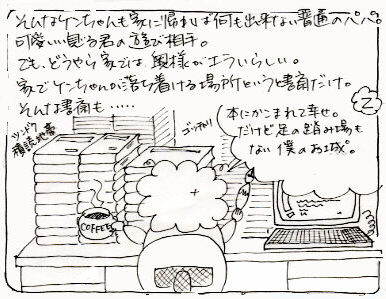 そんなケンちゃんも家に帰れば何も出来ない普通のパパ。
可愛い見る君の遊び相手。
でも、どうやら家では、奥様がエラいらしい。
家でケンちゃんが落ち着ける場所というと書斎だけ。
そんな書斎も……
2
ツンドク
積読地帯
ゴッチャリ
本にかこまれて幸せ。
だけど足の踏み場も
ない僕のお城。
COFFEE